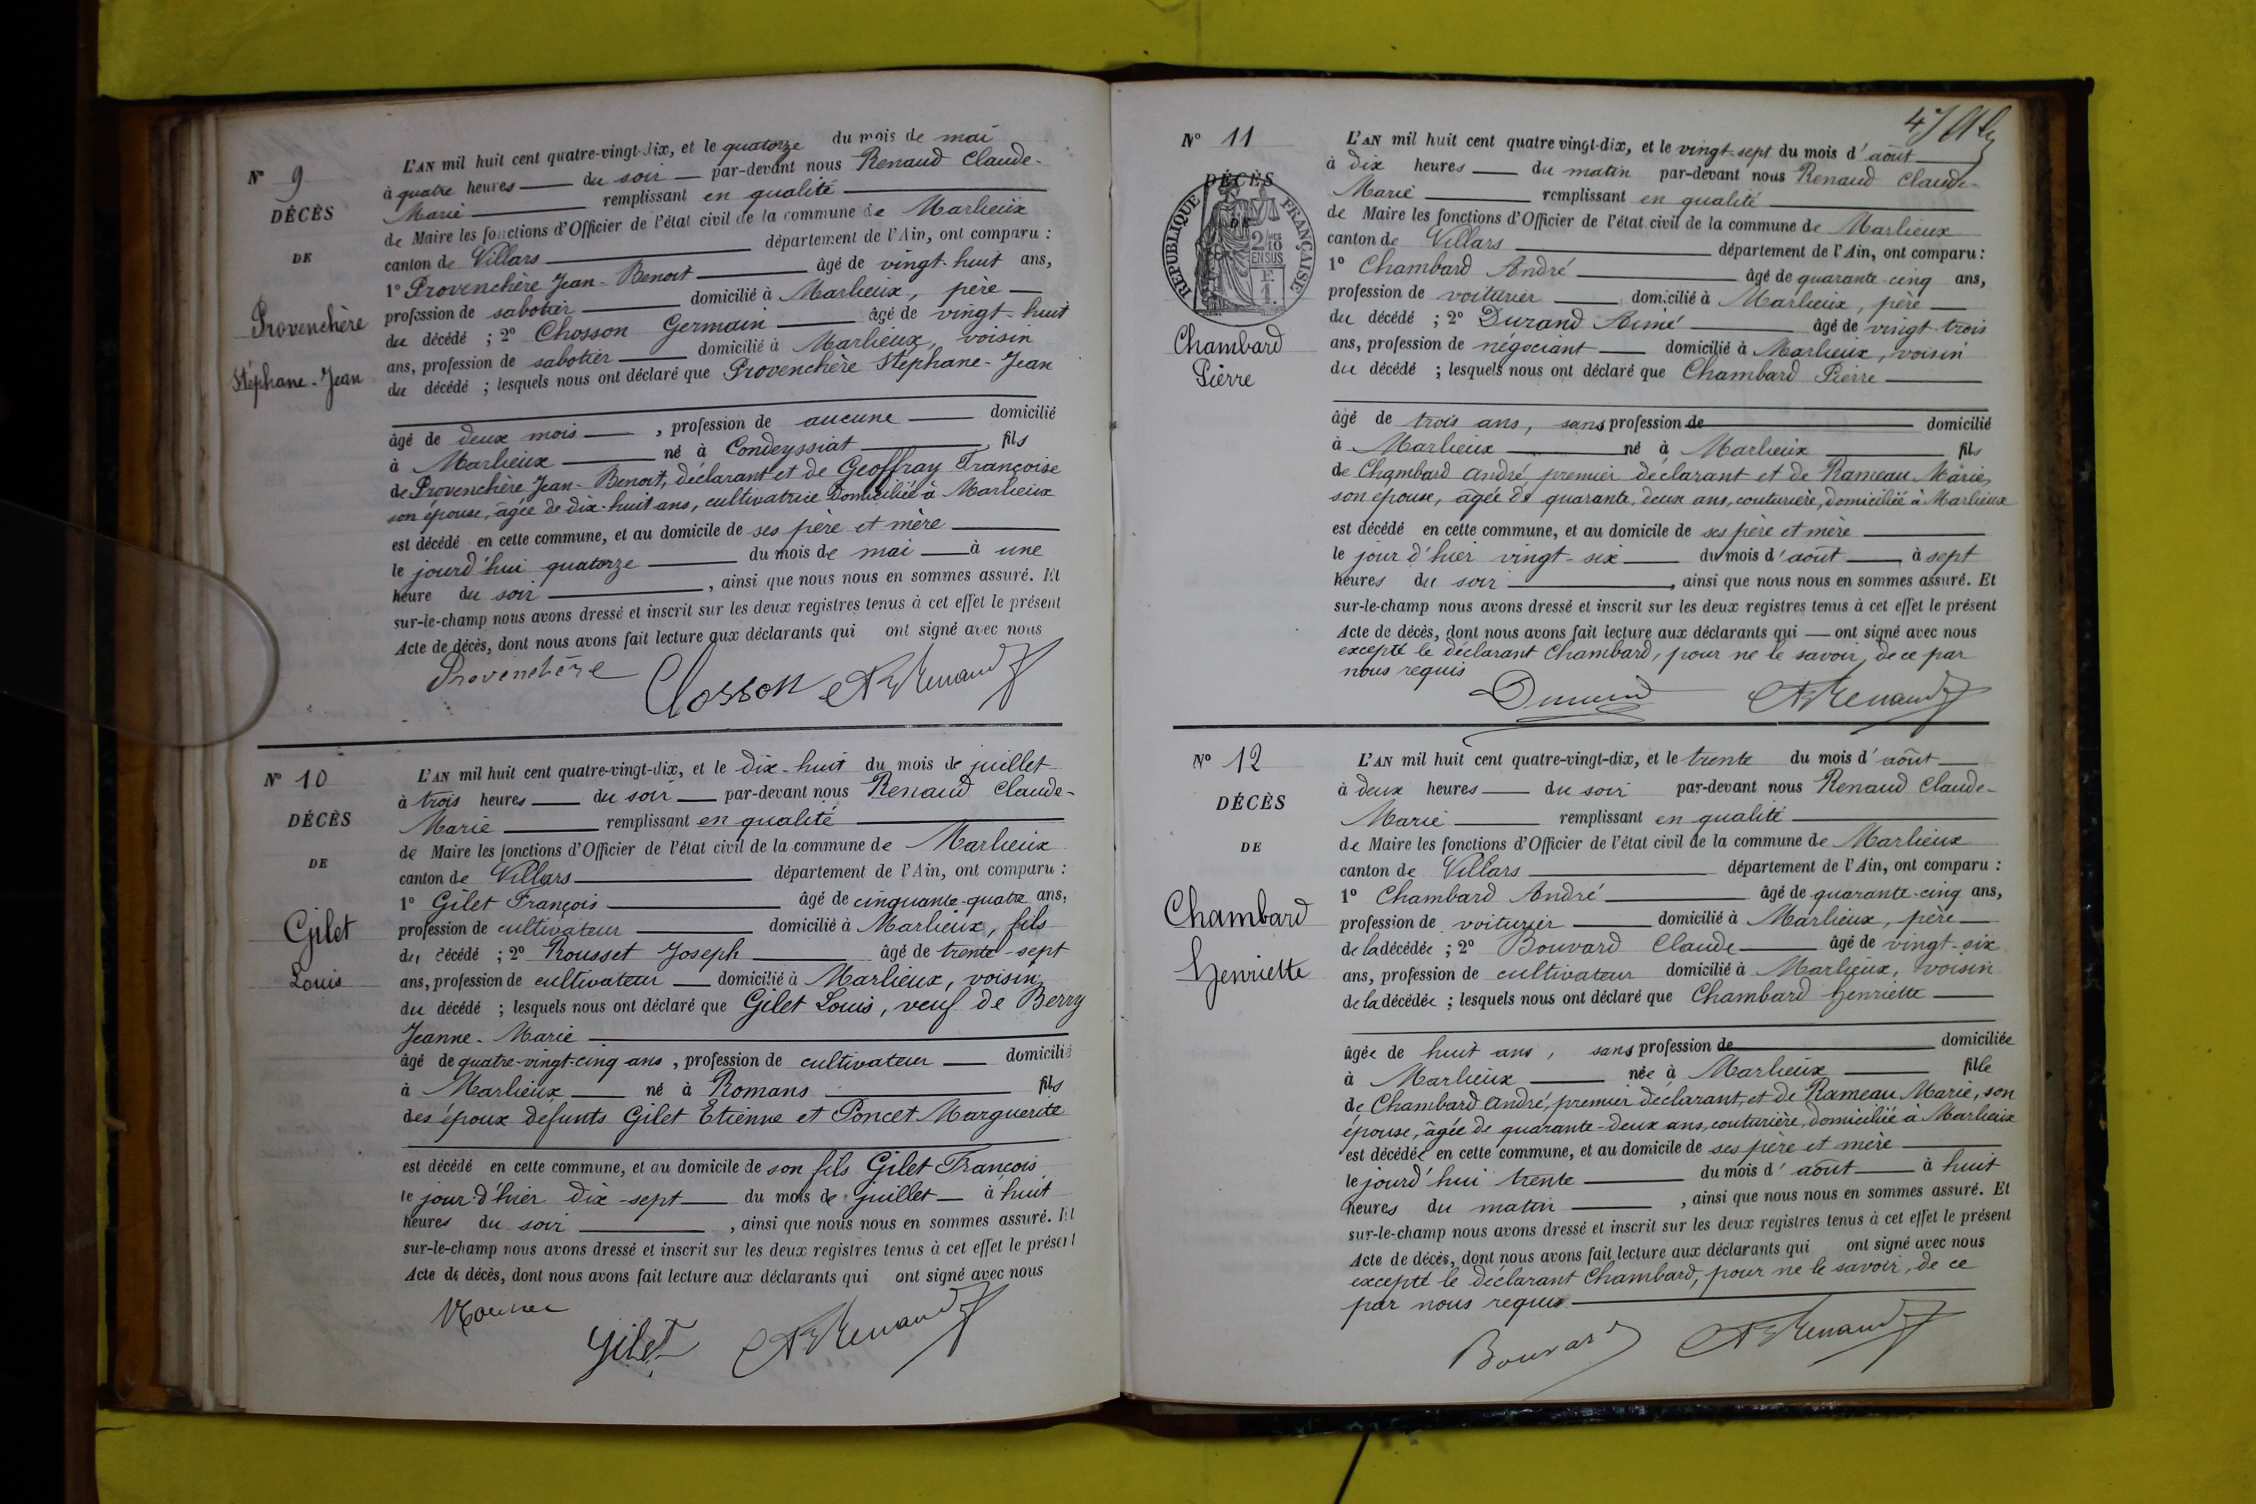 N° 9
DÉCÈS
DE
Provenchère
Stéphane-Jean
L'AN mil huit cent quatre-vingt-dix, et le quatorze du mois de mai
à quatre heures du soir par-devant nous Renaud Claude-
Marie remplissant en qualité
de Maire les fonctions d'Officier de l'état civil de la commune de Marlieux
canton de Villars département de l'Ain, ont comparu :
1° Provenchère Jean-Benoit âgé de vingt-huit ans,
profession de sabotier domicilié à Marlieux, père
du décédé ; 2° Chosson Germain âgé de vingt-huit
ans, profession de sabotier domicilié à Marlieux, voisin
du décédé ; lesquels nous ont déclaré que Provenchère Stéphane-Jean
âgé de deux mois , profession de aucune domicilié
à Marlieux né à Condeyssiat fils
de Provenchère Jean-Benoit, déclarant et de Geoffray Françoise
son épouse, âgée de dix-huit ans, cultivatrice domiciliée à Marlieux
est décédé en cette commune, et au domicile de ses père et mère
le jourd'hui quatorze du mois de mai à une
heure du soir , ainsi que nous nous en sommes assuré. Et
sur-le-champ nous avons dressé et inscrit sur les deux registres tenus à cet effet le présent
Acte de décès, dont nous avons fait lecture aux déclarants qui ont signé avec nous
Provenchère Chosson Renaud
N° 10
DÉCÈS
DE
Gilet
Louis
L'AN mil huit cent quatre-vingt-dix, et le dix-huit du mois de juillet
à trois heures du soir par-devant nous Renaud Claude-
Marie remplissant en qualité
de Maire les fonctions d'Officier de l'état civil de la commune de Marlieux
canton de Villars département de l'Ain, ont comparu :
1° Gilet François âgé de cinquante-quatre ans,
profession de cultivateur domicilié à Marlieux, fils
du décédé ; 2° Rousset Joseph âgé de trente-sept
ans, profession de cultivateur domicilié à Marlieux, voisin
du décédé ; lesquels nous ont déclaré que Gilet Louis, veuf de Berry
Jeanne-Marie
âgé de quatre-vingt-cinq ans , profession de cultivateur domicilié
à Marlieux né à Romans fils
des époux défunts Gilet Etienne et Poncet Marguerite
est décédé en cette commune, et au domicile de son fils Gilet François
le jour d'hier dix-sept du mois de juillet à huit
heures du soir , ainsi que nous nous en sommes assuré. Et
sur-le-champ nous avons dressé et inscrit sur les deux registres tenus à cet effet le présent
Acte de décès, dont nous avons fait lecture aux déclarants qui ont signé avec nous
Gilet Renaud
47
N° 11
DÉCÈS
DE
RÉPUBLIQUE FRANÇAISE
2/10 EN SUS
Chambard
Pierre
L'AN mil huit cent quatre-vingt-dix, et le vingt-sept du mois d'août
à dix heures du matin par-devant nous Renaud Claude-
Marie remplissant en qualité
de Maire les fonctions d'Officier de l'état civil de la commune de Marlieux
canton de Villars département de l'Ain, ont comparu :
1° Chambard André âgé de quarante-cinq ans,
profession de voiturier domicilié à Marlieux, père
du décédé ; 2° Durand Aimé âgé de vingt-trois
ans, profession de négociant domicilié à Marlieux, voisin
du décédé ; lesquels nous ont déclaré que Chambard Pierre
âgé de trois ans, sans profession de domicilié
à Marlieux né à Marlieux fils
de Chambard André premier déclarant et de Rameau Marie,
son épouse, âgée de quarante-deux ans, couturière, domiciliée à Marlieux
est décédé en cette commune, et au domicile de ses père et mère
le jour d'hier vingt-six du mois d'août à sept
heures du soir , ainsi que nous nous en sommes assuré. Et
sur-le-champ nous avons dressé et inscrit sur les deux registres tenus à cet effet le présent
Acte de décès, dont nous avons fait lecture aux déclarants qui ont signé avec nous
excepté le déclarant Chambard, pour ne le savoir, de ce par
nous requis
Durand Renaud
N° 12
DÉCÈS
DE
Chambard
Henriette
L'AN mil huit cent quatre-vingt-dix, et le trente du mois d'août
à deux heures du soir par-devant nous Renaud Claude-
Marie remplissant en qualité
de Maire les fonctions d'Officier de l'état civil de la commune de Marlieux
canton de Villars département de l'Ain, ont comparu :
1° Chambard André âgé de quarante-cinq ans,
profession de voiturier domicilié à Marlieux, père
de la décédée ; 2° Bouvard Claude âgé de vingt-six
ans, profession de cultivateur domicilié à Marlieux, voisin
de la décédée ; lesquels nous ont déclaré que Chambard Henriette
âgée de huit ans, sans profession de domiciliée
à Marlieux née à Marlieux fille
de Chambard André, premier déclarant, et de Rameau Marie, son
épouse, âgée de quarante-deux ans, couturière, domiciliée à Marlieux
est décédée en cette commune, et au domicile de ses père et mère
le jourd'hui trente du mois d'août à huit
heures du matin , ainsi que nous nous en sommes assuré. Et
sur-le-champ nous avons dressé et inscrit sur les deux registres tenus à cet effet le présent
Acte de décès, dont nous avons fait lecture aux déclarants qui ont signé avec nous
excepté le déclarant Chambard, pour ne le savoir, de ce
par nous requis
Bouvard Renaud